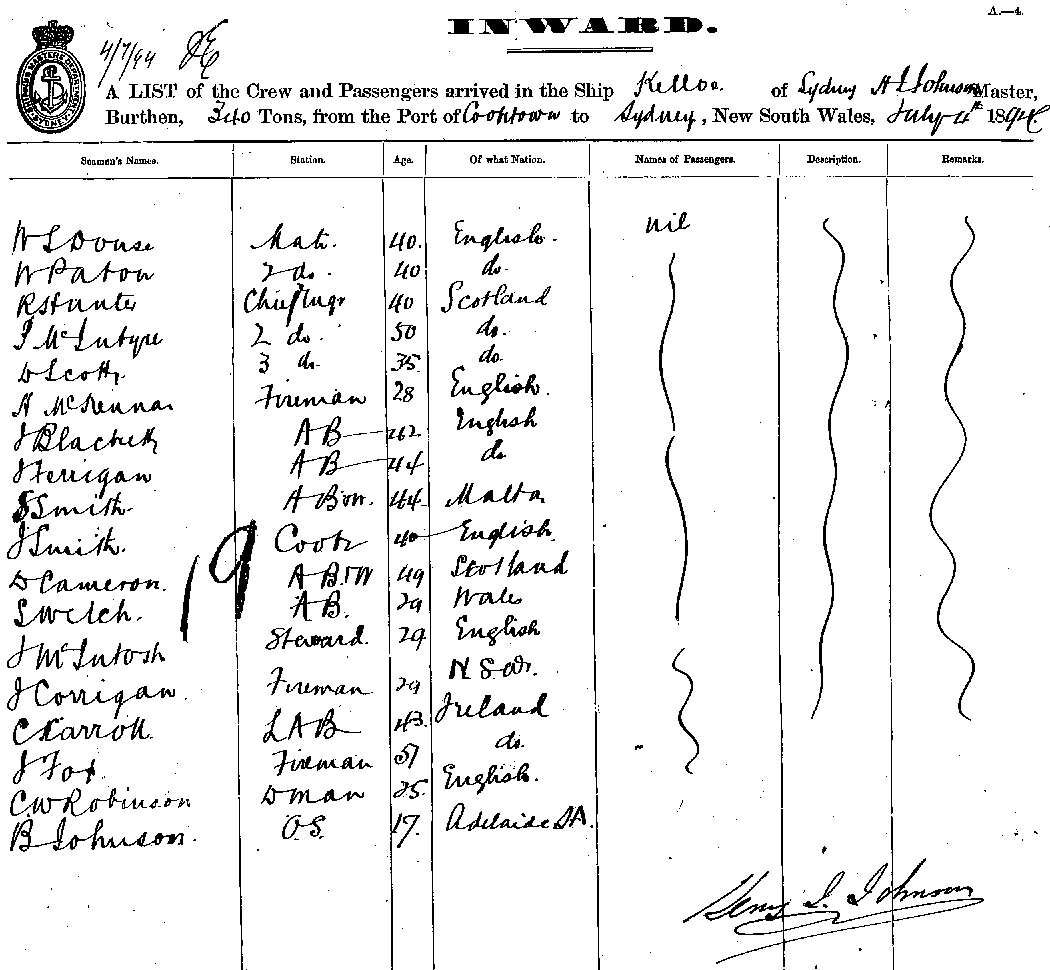 A.—4.
INWARD.
4/7/94
A LIST of the Crew and Passengers arrived in the Ship Kelloe of Sydney H I Johnson Master,
Burthen, 340 Tons, from the Port of Cooktown to Sydney, New South Wales, July 4th 1894
Seamen's Names. Station. Age. Of what Nation. Names of Passengers. Description. Remarks.
W S Douse Mate. 40. English. nil
W Paton 2 do. 40 do.
R Hunter Chief Engr 40 Scotland
J McIntyre 2 do. 50 do.
D Scott 3 do. 35 do.
H McKenna Fireman 28 English.
J Blackett AB 42 English
J Ferrigan AB 44 do
S Smith. AB 44 Malta
J Smith. Cook 40 English.
D Cameron. AB 49 Scotland
S Welch. AB. 29 Wales
J McIntosh Steward. 29 English
J Corrigan. Fireman 29 N.S.W.
C Carroll. LAB 43. Ireland
J Fox. Fireman 51 do.
C W Robinson Dman 25. English.
B Johnson. O.S. 17. Adelaide SA.
19
Henry I. Johnson